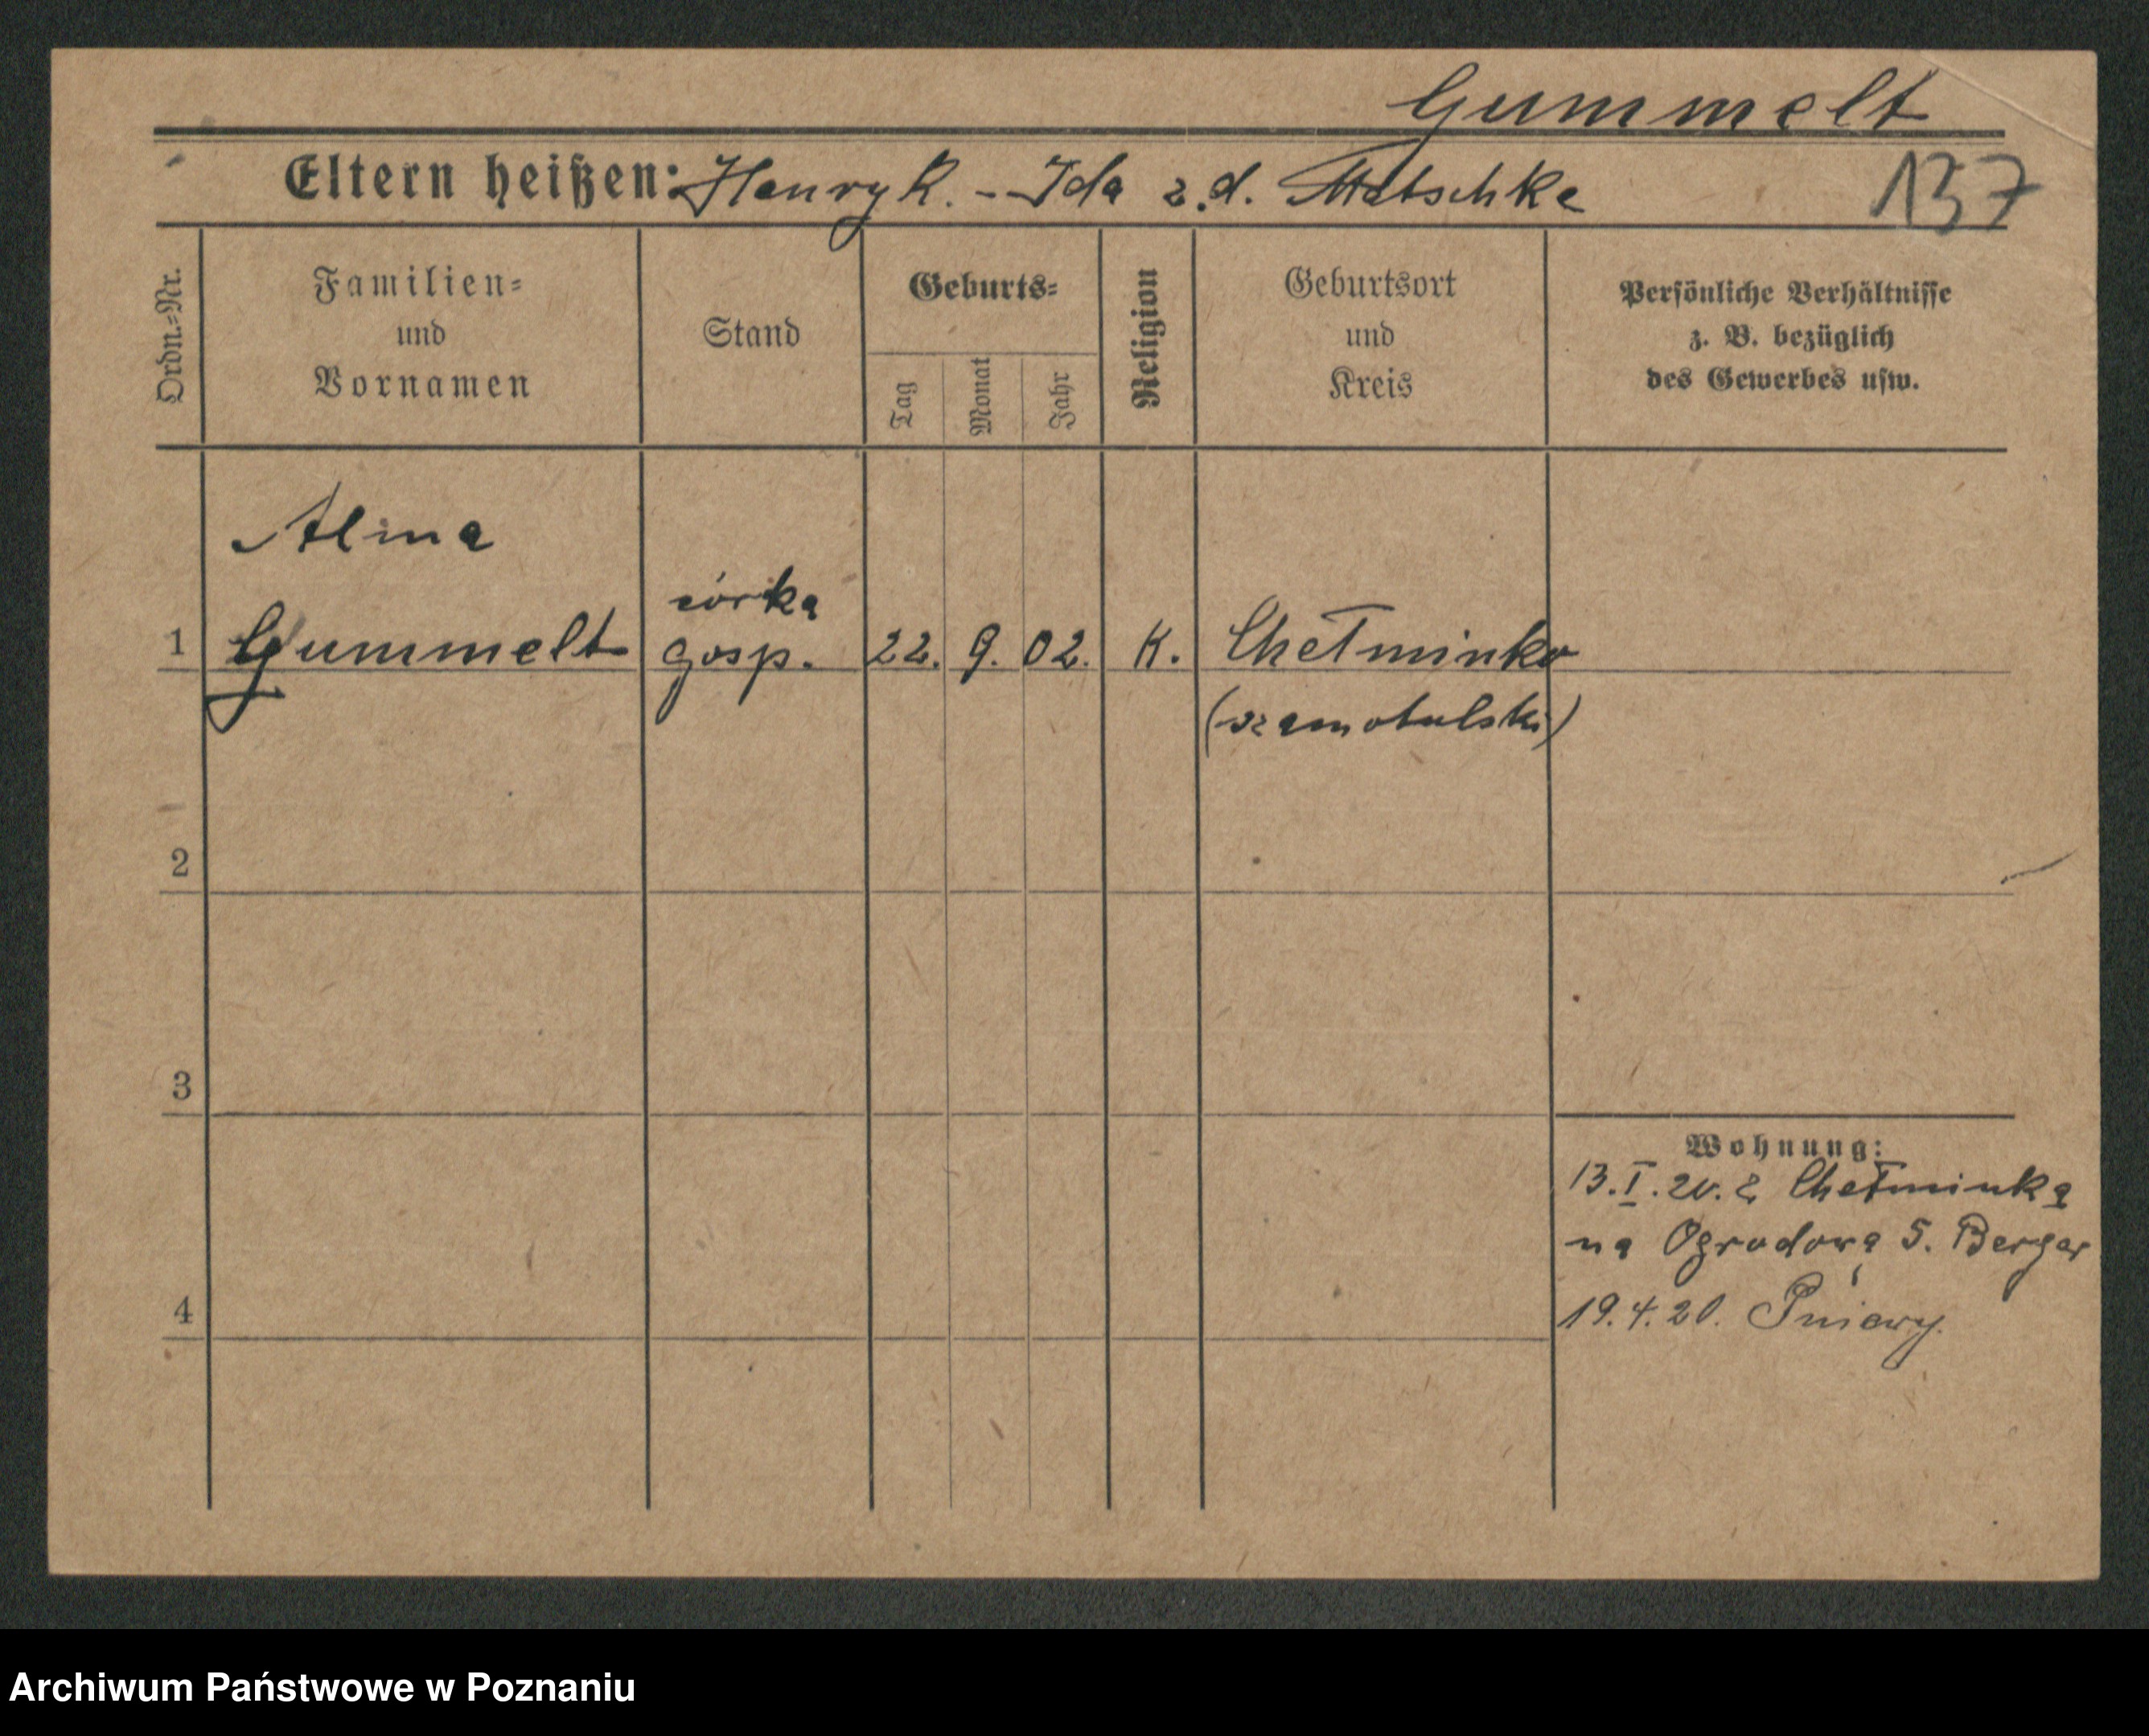 Gummelt
Eltern heißen: Henryk. - Ida z.d. Matschke
137
Ordn.-Nr.
Familien-
und
Vornamen
Stand
Geburts-
Tag
Monat
Jahr
Religion
Geburtsort
und
Kreis
Persönliche Verhältnisse
z. B. bezüglich
des Gewerbes usw.
Alma
córka
1 Gummelt gosp. 22. 9. 02. K. Chełminko
(szamotulski)
2
3
Wohnung:
13.I.20. z Chełminka
na Ogrodową 5. Berger
4
19.4.20. Pniewy.
Archiwum Państwowe w Poznaniu